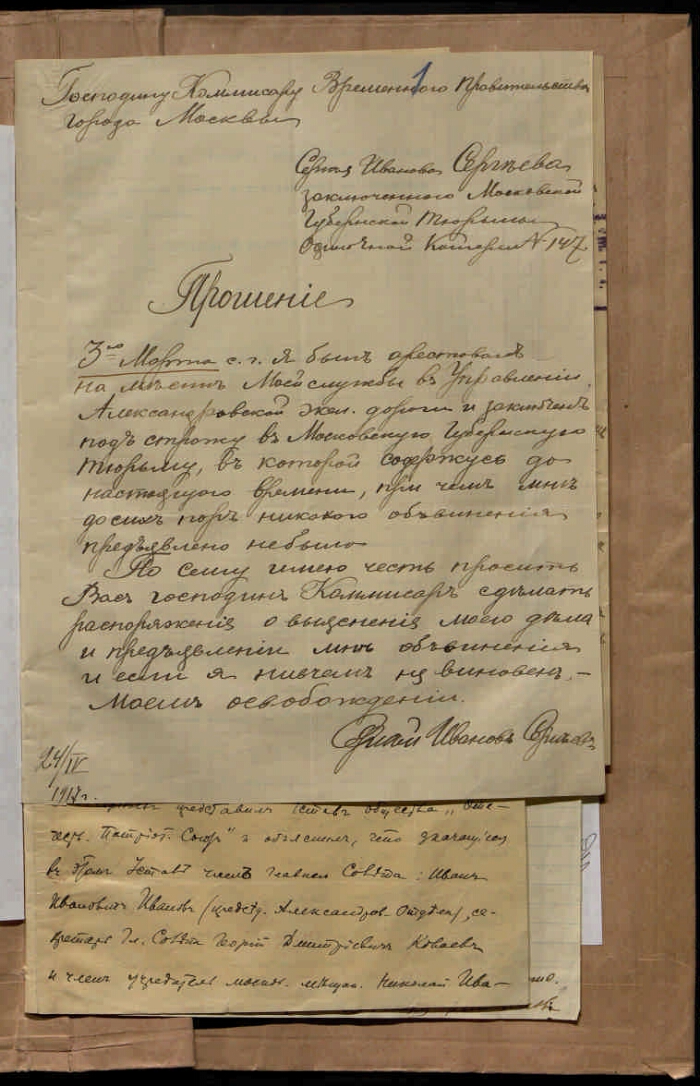 1
Господину Коммисару Временного Правительства
города Москвы
Сергея Иванова Сергѣева
заключенного Московской
Губернской Тюрьмы
Одиночной Категории № 147
Прошеніе
3го Марта с. г. я былъ арестованъ
на мѣстѣ Моей службы въ Управленіи
Александровской жел. дороги и заключенъ
подъ стражу въ Московскую Губернскую
тюрьму, въ которой содержусь до
настоящего времени, при чемъ мнѣ
до сихъ поръ никокого объвиненія
предъявлено небыло
По сему имею честь просить
Васъ господинъ Коммисаръ сдѣлать
распоряженія о выясненія моего дѣла
и предъявленіи мнѣ объвиненія
и если я ничемъ не виновенъ, –
Моемъ освобожденіи.
Сергѣй Ивановъ Сергѣевъ
24/IV
1917 г.
представилъ уставъ общества „Оте–
чест. Патріот. Союзъ" и объяснилъ, что значащіеся
въ этомъ Уставѣ членъ главнаго Совѣта: Иванъ
Ивановичъ Ивановъ (предсѣд. Александров. Отдѣла), се–
кретарь Гл. Совѣта Георгій Дмитріевичъ Коваевъ
и членъ учредитель москов. мѣщан. Николай Ива–